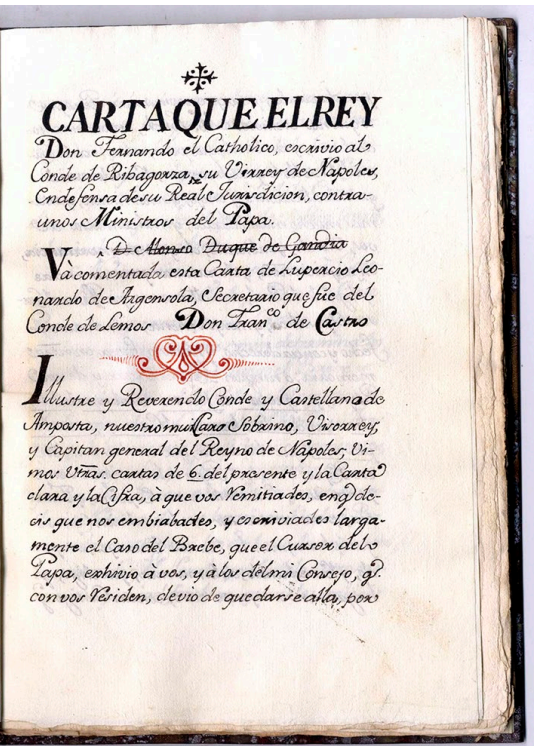 CARTA QUE EL REY
Don Fernando el Catholico, escrivio al
Conde de Ribagorza, su Virrey de Napoles,
En defensa de su Real Jurisdicion, contra
unos Ministros del Papa.
D. Alonso Duque de Gandia
Va comentada esta Carta de Lupercio Leo-
nardo de Argensola, Secretario que fue del
Conde de Lemos Don Franco de Castro
Illustre y Reverendo Conde y Castellano de
Amposta, nuestro mui Caro Sobrino, Visorrey,
y Capitan general del Reyno de Napoles, Vi-
mos Vtras. cartas de 6. del presente y la Carta
clara y la Cifra, à que vos remitiades, en q de-
cis que nos embiabades, y escriviades larga-
mente el Caso del Brebe, que el Cursor del
Papa, exhivio à vos, y à los del mi Consejo, q.
con vos residen, devio de quedarse alla, por